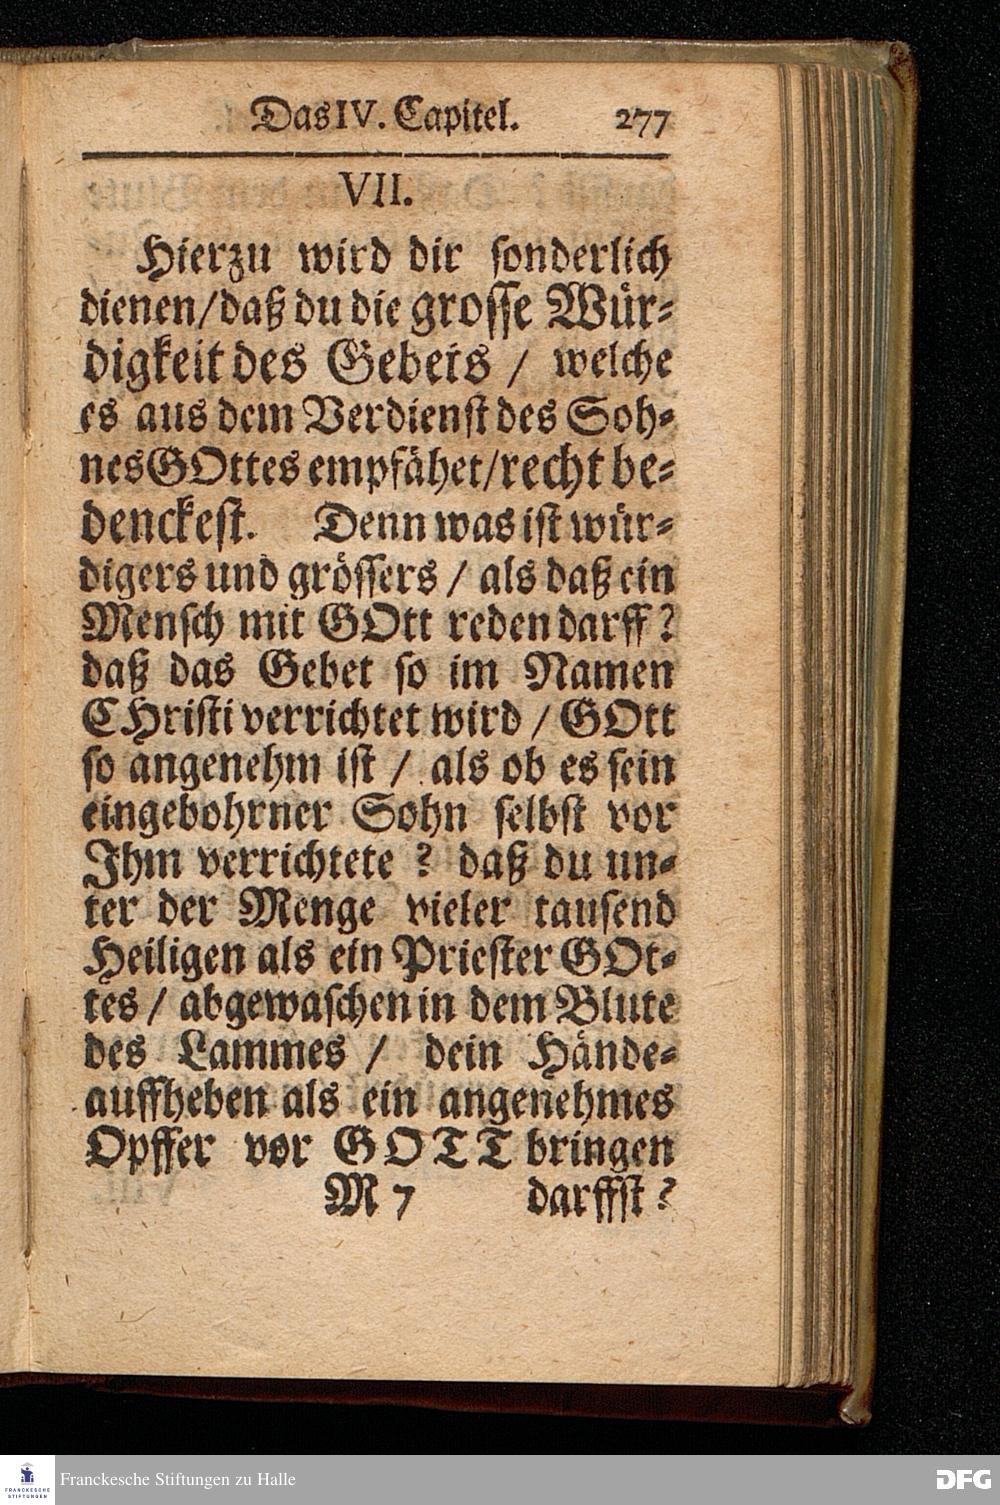 Das IV. Capitel. 277
VII.
Hierzu wird dir sonderlich
dienen/daß du die grosse Wür-
digkeit des Gebets / welche
es aus dem Verdienst des Soh-
nes GOttes empfähet/recht be-
denckest. Denn was ist wür-
digers und grössers / als daß ein
Mensch mit GOtt reden darff?
daß das Gebet so im Namen
CHristi verrichtet wird / GOtt
so angenehm ist / als ob es sein
eingebohrner Sohn selbst vor
Ihm verrichtete ? daß du un-
ter der Menge vieler tausend
Heiligen als ein Priester GOt-
tes / abgewaschen in dem Blute
des Lammes / dein Hände-
auffheben als ein angenehmes
Opffer vor GOTT bringen
M 7 darffst ?
FRANCKESCHE
STIFTUNGEN
Franckesche Stiftungen zu Halle
DFG